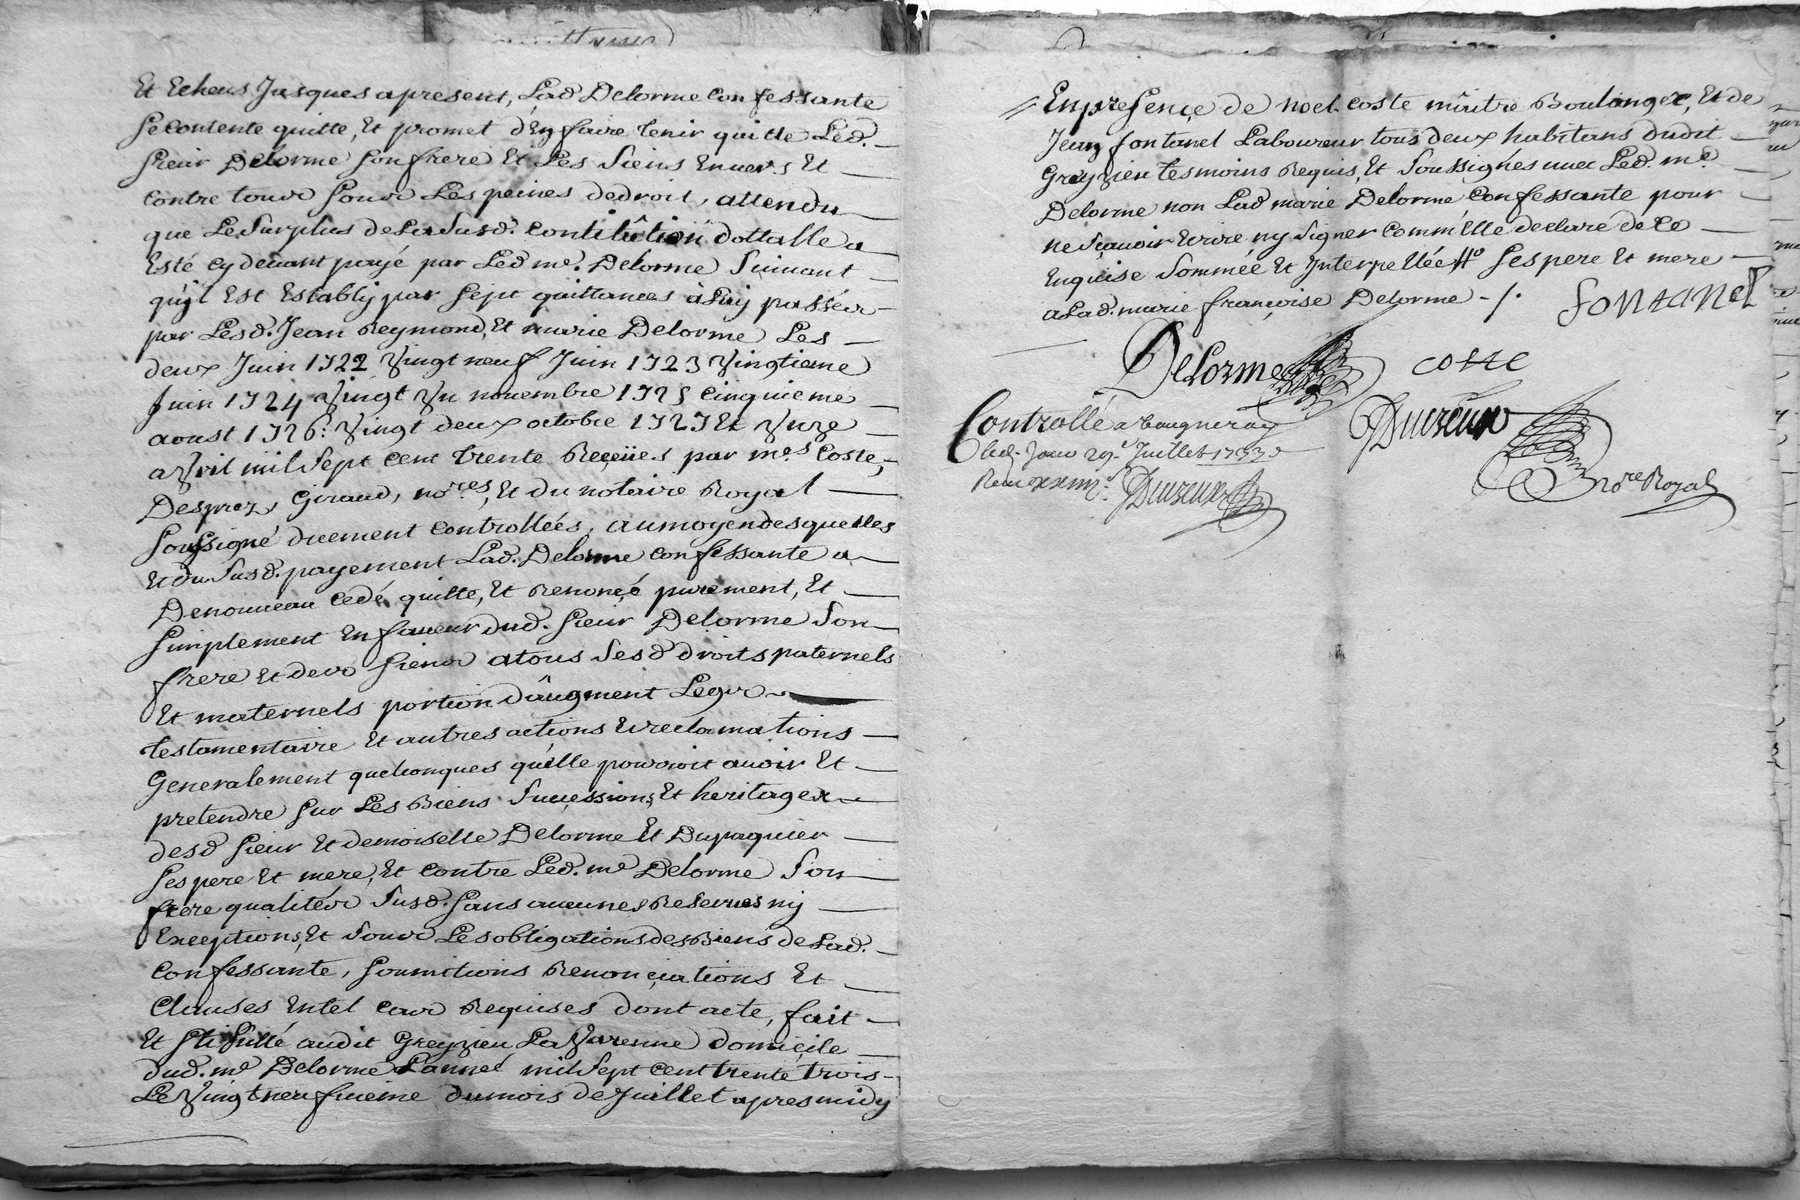 Et Echeus Jusques apresent, Lad. Delorme confessante
se contente quitte, Et promet d'En faire tenir quitte Led.
sieur Delorme son frere Et Les siens Envers Et
contre tous sous Les peines de droit, attendu
que Le surplus de La susd. constitution dottalle a
Esté cy devant payé par Led. me. Delorme suivant
qu'jl Est Estably par sept quittances à Luy passées
par Lesd. Jean Reymond, Et marie Delorme Les
deux Juin 1722 vingt neuf Juin 1723 vingtieme
Juin 1724 vingt vn novembre 1725 cinquieme
aoust 1726: vingt deux octobre 1727 Et vnze
avril mil sept cent trente Reçeües par mes. Coste,
Desprez, Giraud, nores, Et du notaire Royal
soussigné duement controllées, au moyen desquelles
Et du susd. payement Lad. Delorme confessante a
De nouveau cedé, quitté, Et Renoncé purement, Et
simplement En faveur dud. sieur Delorme son
frere Et des siens a tous sesd. droits paternels
Et maternels portion d'âugment Legs
testamentaire Et autres actions Et reclamations
Generalement quelconques qu'elle pouvoit avoir Et
pretendre sur Les Biens successions, Et heritages
desd. sieur Et demoiselle Delorme Et Dupaquier
ses pere Et mere, Et contre Led. me Delorme son
frere qualités susd. sans aucunes Reserves ny
Exceptions, Et sous Les obligations des Biens de Lad.
confessante, soumitions Renonciations Et
Clauses En tel cas Requises dont acte, fait
Et stipullé audit Grezieu La Varenne domicile
dud. me Delorme L'année mil sept cent trente trois
Le vingt neufvieme du mois de Juillet apres midy
En presence de noel coste mâitre Boulanger, Et de
Jean fontanel Laboureur tous deux habitans dudit
Grezieu tesmoins Requis, Et soussignés avec Led. me.
Delorme non Lad. marie Delorme Confessante pour
ne sçavoir Ecrire ny signer comm'elle declare de ce
Enquise sommée Et Interpellée # ses pere Et mere
a Lad. marie françoise Delorme -/.
fontanel
Delorme
coste
Controllé a vaugneray
Led. Jour 29e. Juillet 1733
Duvreux
Duvreux
nore Royal